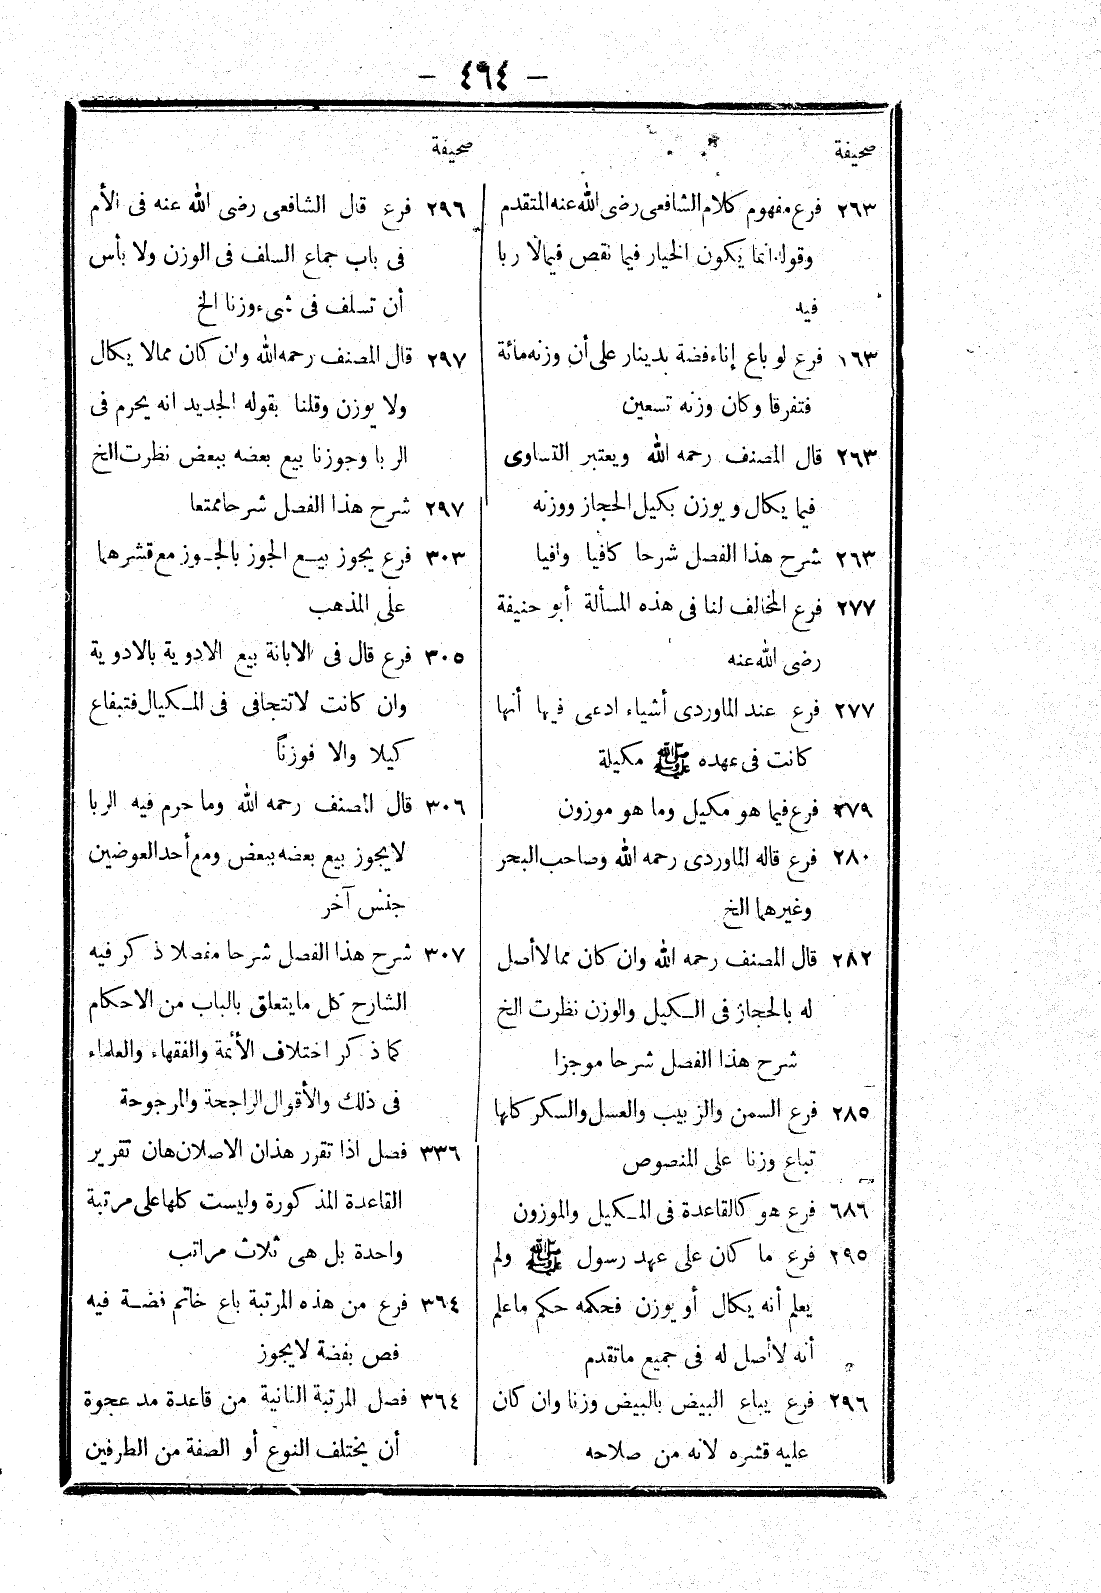 — ٤٩٤ —
صحيفة
٢٦٣ فرع مفهوم كلام الشافعى رضى الله عنه المتقدم
وقوله انما يكون الخيار فيما نقص فيمالا ربا
فيه
١٦٣ فرع لو باع إناء فضة بدينار على أن وزنه مائة
فتفرقا وكان وزنه تسعين
٢٦٣ قال المصنف رحمه الله ويعتبر التساوى
فيما يكال ويوزن بكيل الحجاز ووزنه
٢٦٣ شرح هذا الفصل شرحا كافيا وافيا
٢٧٧ فرع المخالف لنا فى هذه المسألة أبو حنيفة
رضى الله عنه
٢٧٧ فرع عند الماوردى أشياء ادعى فيها أنها
كانت فى عهده ﷺ مكيلة
٢٧٩ فرع فيما هو مكيل وما هو موزون
٢٨٠ فرع قاله الماوردى رحمه الله وصاحب البحر
وغيرهما الخ
٢٨٢ قال المصنف رحمه الله وان كان مما لا أصل
له بالحجاز فى الكيل والوزن نظرت الخ
شرح هذا الفصل شرحا موجزا
٢٨٥ فرع السمن والزبيب والعسل والسكر كلها
تباع وزنا على المنصوص
٦٨٦ فرع هو كالقاعدة فى المكيل والموزون
٢٩٥ فرع ما كان على عهد رسول ﷺ ولم
يعلم أنه يكال أو يوزن فحكمه حكم ماعلم
أنه لا أصل له فى جميع ماتقدم
٢٩٦ فرع يباع البيض بالبيض وزنا وان كان
عليه قشره لانه من صلاحه
صحيفة
٢٩٦ فرع قال الشافعى رضى الله عنه فى الأم
فى باب جماع السلف فى الوزن ولا بأس
أن تسلف فى شىء وزنا الخ
٢٩٧ قال المصنف رحمه الله وان كان ممالا يكال
ولا يوزن وقلنا بقوله الجديد انه يحرم فى
الربا وجوزنا بيع بعضه ببعض نظرت الخ
٢٩٧ شرح هذا الفصل شرحا ممتعا
٣٠٣ فرع يجوز بيع الجوز بالجوز مع قشرهما
على المذهب
٣٠٥ فرع قال فى الابانة بيع الادوية بالادوية
وان كانت لا تتجافى فى المكيال فتباع
كيلا والا فوزنًا
٣٠٦ قال المصنف رحمه الله وما حرم فيه الربا
لايجوز بيع بعضه ببعض ومع أحد العوضين
جنس آخر
٣٠٧ شرح هذا الفصل شرحا مفصلا ذكر فيه
الشارح كل مايتعلق بالباب من الاحكام
كما ذكر اختلاف الأئمة والفقهاء والعلماء
فى ذلك والأقوال الراجحة والمرجوحة
٣٣٦ فصل اذا تقرر هذان الاصلان هان تقرير
القاعدة المذكورة وليست كلها على مرتبة
واحدة بل هى ثلاث مراتب
٣٦٤ فرع من هذه المرتبة باع خاتم فضة فيه
فص بفضة لايجوز
٣٦٤ فصل المرتبة الثانية من قاعدة مد عجوة
أن يختلف النوع أو الصفة من الطرفين